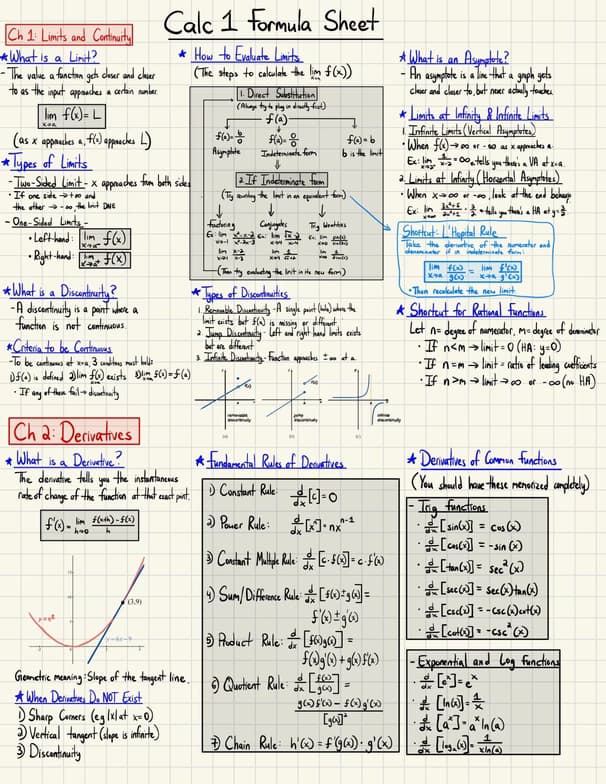 Calc 1 Formula Sheet
Ch 1: Limits and Continuity
* What is a Limit?
- The value a function gets closer and closer
to as the input approaches a certain number.
lim f(x) = L
x→a
(as x approaches a, f(x) approaches L)
* Types of Limits
- Two-Sided Limit - x approaches from both sides
• If one side → +∞ and
the other → -∞, the limit DNE
- One-Sided Limits -
• Left-hand: lim f(x)
x→a⁻
• Right-hand: lim f(x)
x→a⁺
* What is a Discontinuity?
- A discontinuity is a point where a
function is not continuous.
* Criteria to be Continuous
- To be continuous at x=a, 3 conditions must hold:
1) f(a) is defined 2) lim f(x) exists 3) lim f(x) = f(a)
• If any of these fail → discontinuity
* How to Evaluate Limits
(The steps to calculate the lim f(x))
1. Direct Substitution
(Always try to plug in directly first)
f(a)
f(a)= b/0 f(a)= 0/0 f(a)=b
Asymptote Indeterminate form b is the limit
2. If Indeterminate form
(Try rewriting the limit in an equivalent form)
Factoring Conjugates Trig Identities
(Then try evaluating the limit in the new form)
* Types of Discontinuities
1. Removable Discontinuity - A single point (hole) where the
limit exists but f(a) is missing or different.
2. Jump Discontinuity - Left and right hand limits exists
but are different
3. Infinite Discontinuity - Function approaches ±∞ at a
removable discontinuity
jump discontinuity
infinite discontinuity
* What is an Asymptote?
- An asymptote is a line that a graph gets
closer and closer to, but never actually touches.
* Limits at Infinity & Infinite Limits
1. Infinite Limits (Vertical Asymptotes)
• When f(x) → ∞ or -∞ as x approaches a.
= ∞, tells you there's a VA at x=a.
2. Limits at Infinity (Horizontal Asymptotes)
• When x → ∞ or -∞, look at the end behavior.
Shortcut: L'Hopital Rule
Take the derivative of the numerator and
denominator if in indeterminate form:
lim f(x)/g(x) = lim f'(x)/g'(x)
x→a x→a
• Then recalculate the new limit.
* Shortcut for Rational Functions
Let n= degree of numerator, m= degree of denominator
• If n<m → limit = 0 (HA: y=0)
• If n=m → limit = ratio of leading coefficients
• If n>m → limit → ∞ or -∞ (no HA)
Ch 2: Derivatives
* What is a Derivative?
The derivative tells you the instantaneous
rate of change of the function at that exact point.
f'(x) = lim (f(x+h) - f(x))/h
h→0
(3,9)
y=x²
y=6x-9
Geometric meaning: Slope of the tangent line.
* When Derivatives Do NOT Exist
1) Sharp Corners (eg |x| at x=0)
2) Vertical tangent (slope is infinite)
3) Discontinuity
* Fundamental Rules of Derivatives
1) Constant Rule: d/dx [c] = 0
2) Power Rule: d/dx [xⁿ] = nxⁿ⁻¹
3) Constant Multiple Rule: d/dx [c·f(x)] = c·f'(x)
4) Sum/Difference Rule: d/dx [f(x)±g(x)] =
f'(x) ± g'(x)
5) Product Rule: d/dx [f(x)g(x)] =
f(x)g'(x) + g(x)f'(x)
6) Quotient Rule: d/dx [f(x)/g(x)] =
(g(x)f'(x) - f(x)g'(x))/[g(x)]²
7) Chain Rule: h'(x) = f'(g(x)) · g'(x)
* Derivatives of Common Functions
(You should have these memorized completely)
- Trig functions
• d/dx [sin(x)] = cos(x)
• d/dx [cos(x)] = -sin(x)
• d/dx [tan(x)] = sec²(x)
• d/dx [sec(x)] = sec(x)tan(x)
• d/dx [csc(x)] = -csc(x)cot(x)
• d/dx [cot(x)] = -csc²(x)
- Exponential and Log functions
• d/dx [eˣ] = eˣ
• d/dx [ln(x)] = 1/x
• d/dx [aˣ] = aˣ ln(a)
• d/dx [logₐ(x)] = 1/(x ln(a))